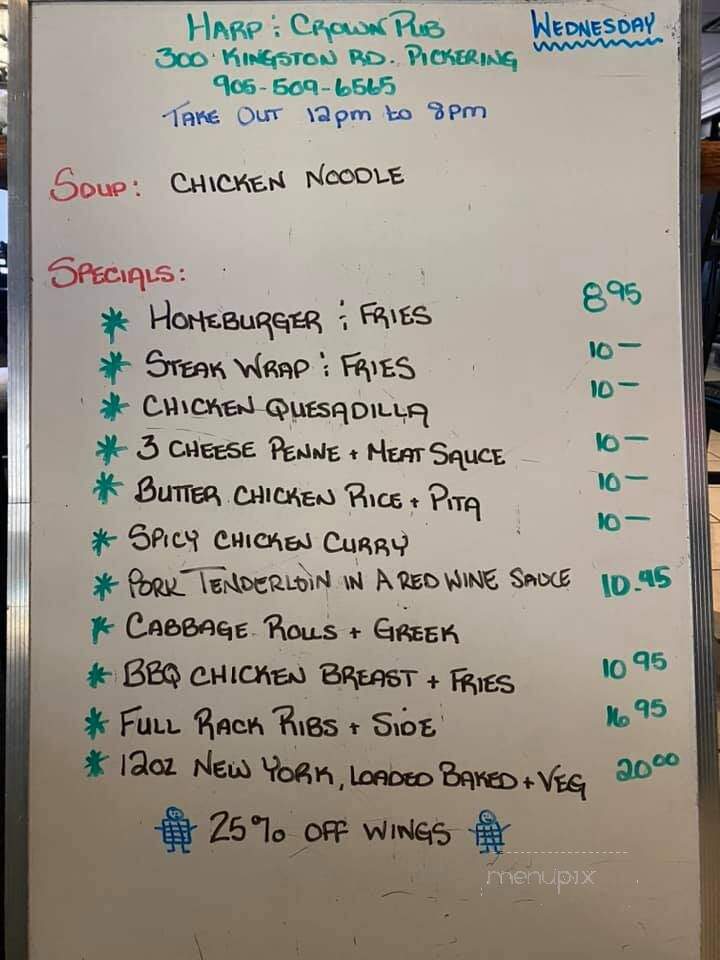 HARP & CROWN PUB
WEDNESDAY
300 KINGSTON RD. PICKERING
905-509-6565
TAKE OUT 12pm to 8pm
SOUP: CHICKEN NOODLE
SPECIALS:
* HOMEBURGER & FRIES 8 95
* STEAK WRAP & FRIES 10 —
* CHICKEN QUESADILLA 10 —
* 3 CHEESE PENNE + MEAT SAUCE 10 —
* BUTTER CHICKEN RICE + PITA 10 —
* SPICY CHICKEN CURRY 10 —
* PORK TENDERLOIN IN A RED WINE SAUCE 10.95
* CABBAGE ROLLS + GREEK
* BBQ CHICKEN BREAST + FRIES 10 95
* FULL RACK RIBS + SIDE 16 95
* 12OZ NEW YORK, LOADED BAKED + VEG 20 00
25% OFF WINGS
menupix